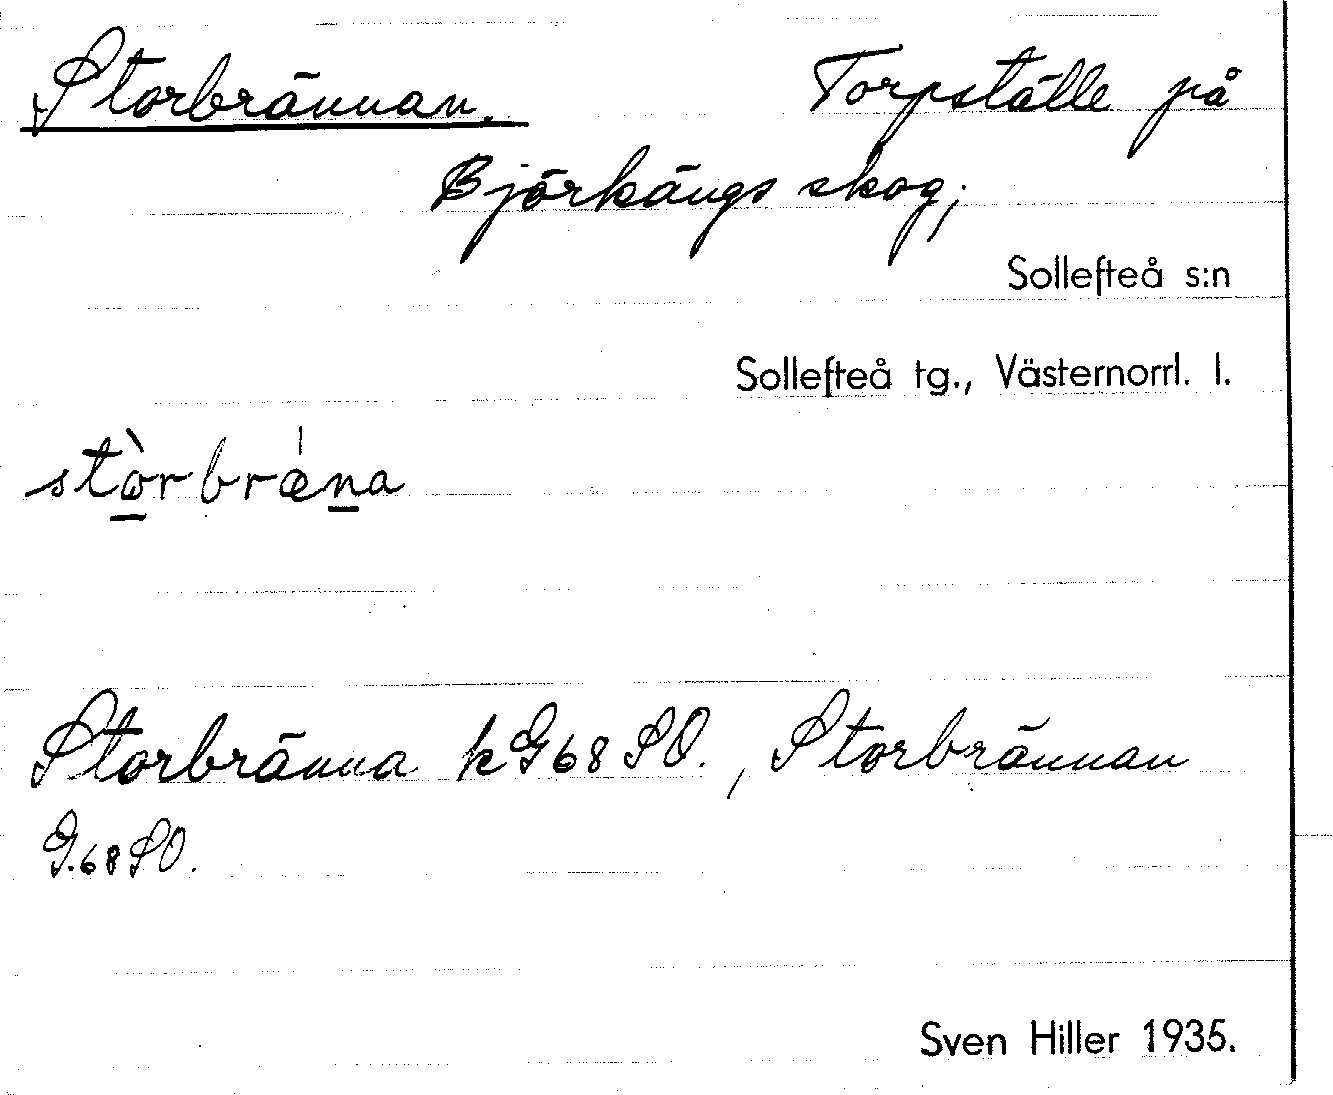 Storbrännan. Torpställe på
Björkängs skog;
Sollefteå s:n
Sollefteå tg., Västernorrl. l.
stòrbrǽna
Storbränna kG68SO., Storbrännan
G.68SO.
Sven Hiller 1935.